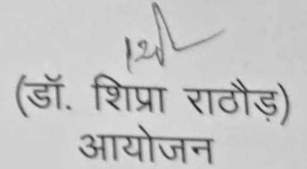 (डॉ. शिप्रा राठौड़)
आयोजन